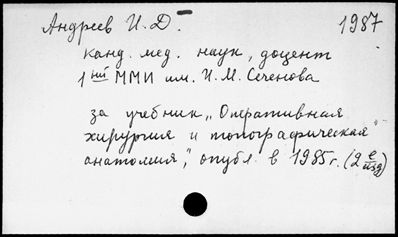 Андреев И. Д. 1987
канд. мед. наук, доцент
1ый ММИ им. И. М. Сеченова
за учебник „Оперативная
хирургия и топографическая
анатомия", опубл. в 1985 г. (2е изд)